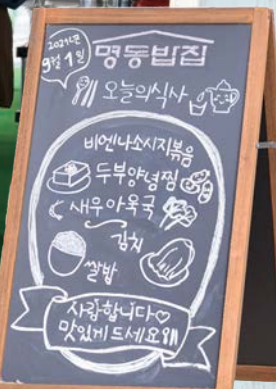 2021년
9월 1일
명동밥집
오늘의식사
비엔나소시지볶음
두부양념찜
새우아욱국
김치
쌀밥
사랑합니다♡
맛있게드세요